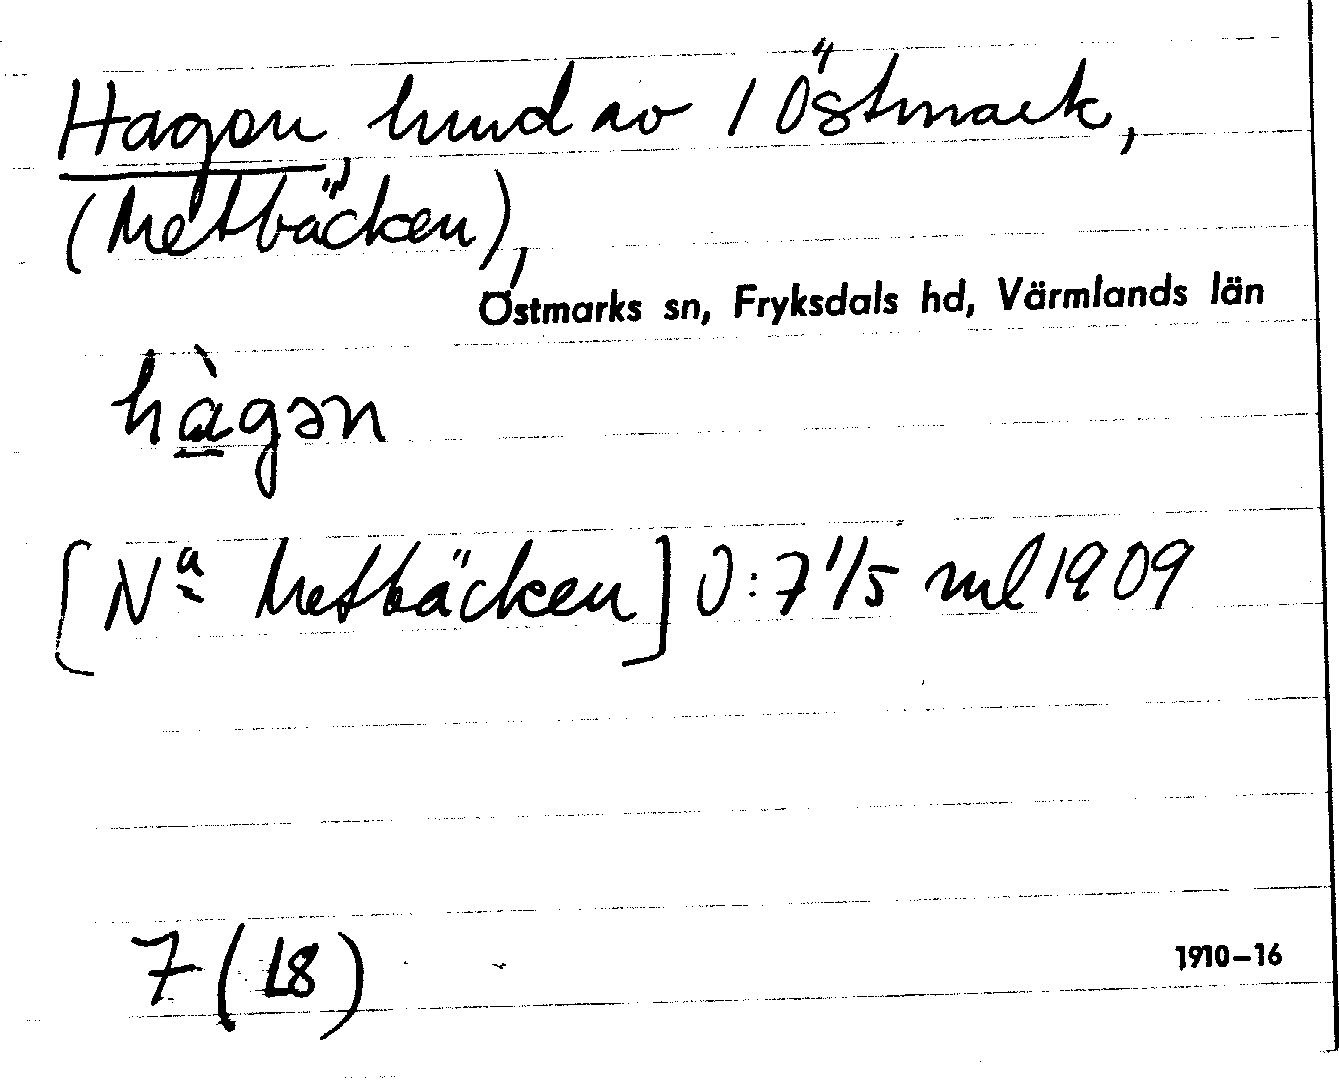 Hagen, hmd av 1 Östmark,
(Metbäcken),
Östmarks sn, Fryksdals hd, Värmlands län
hàgən
[Nª Metbäcken] O: 7 1/5 ml 1909
7 (18)
1910–16